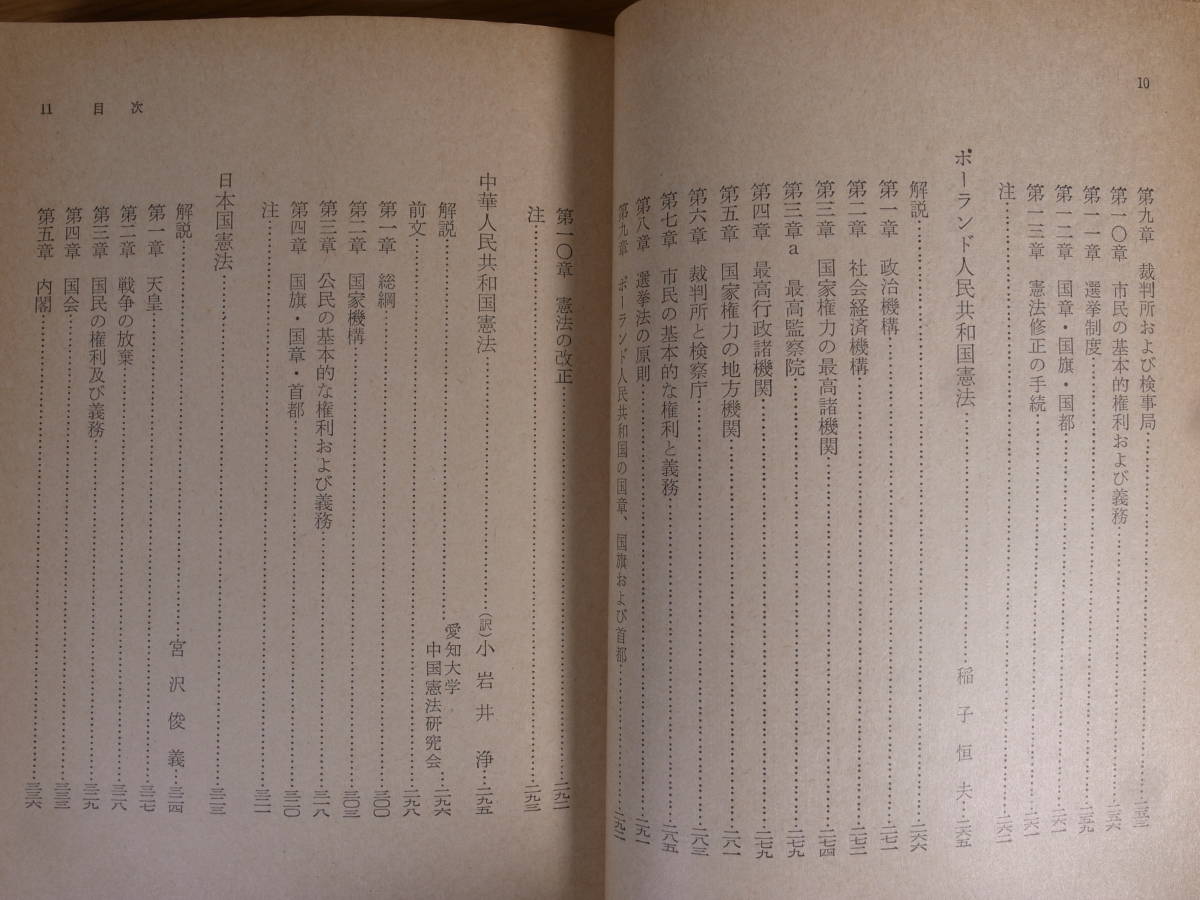 10
第九章 裁判所および検事局……二五三
第一〇章 市民の基本的権利および義務……二五六
第一一章 選挙制度……二五九
第一二章 国章・国旗・国都……二六一
第一三章 憲法修正の手続……二六一
注……二六二
ポーランド人民共和国憲法……稲子恒夫…二六五
解説……二六六
第一章 政治機構……二七一
第二章 社会経済機構……二七二
第三章 国家権力の最高諸機関……二七四
第三章a 最高監察院……二七九
第四章 最高行政諸機関……二七九
第五章 国家権力の地方機関……二八一
第六章 裁判所と検察庁……二八三
第七章 市民の基本的な権利と義務……二八五
第八章 選挙法の原則……二九一
第九章 ポーランド人民共和国の国章、国旗および首都……二九二
11 目次
第一〇章 憲法の改正……二九二
注……二九三
中華人民共和国憲法……(訳)小岩井 浄…二九五
解説……愛知大学中国憲法研究会…二九六
前文……二九八
第一章 総綱……三〇〇
第二章 国家機構……三〇三
第三章 公民の基本的な権利および義務……三一八
第四章 国旗・国章・首都……三二〇
注……三二一
日本国憲法……三二三
解説……宮沢俊義…三二四
第一章 天皇……三二七
第二章 戦争の放棄……三二八
第三章 国民の権利及び義務……三二九
第四章 国会……三三三
第五章 内閣……三三六